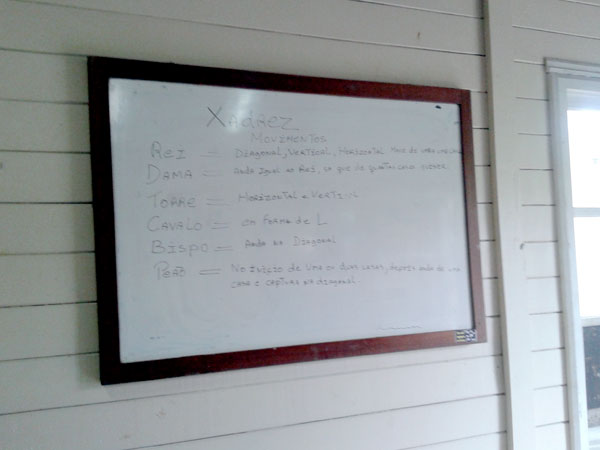 Xadrez
Movimentos
Rei = Diagonal, Vertical, Horizontal Move de uma casa
Dama = Anda igual ao Rei, so que de quantas casa quiser.
Torre = Horizontal e Vertical
Cavalo = em forma de L
Bispo = Anda na Diagonal
Peão = No início de uma ou duas casas, depois anda de uma
casa e captura na diagonal